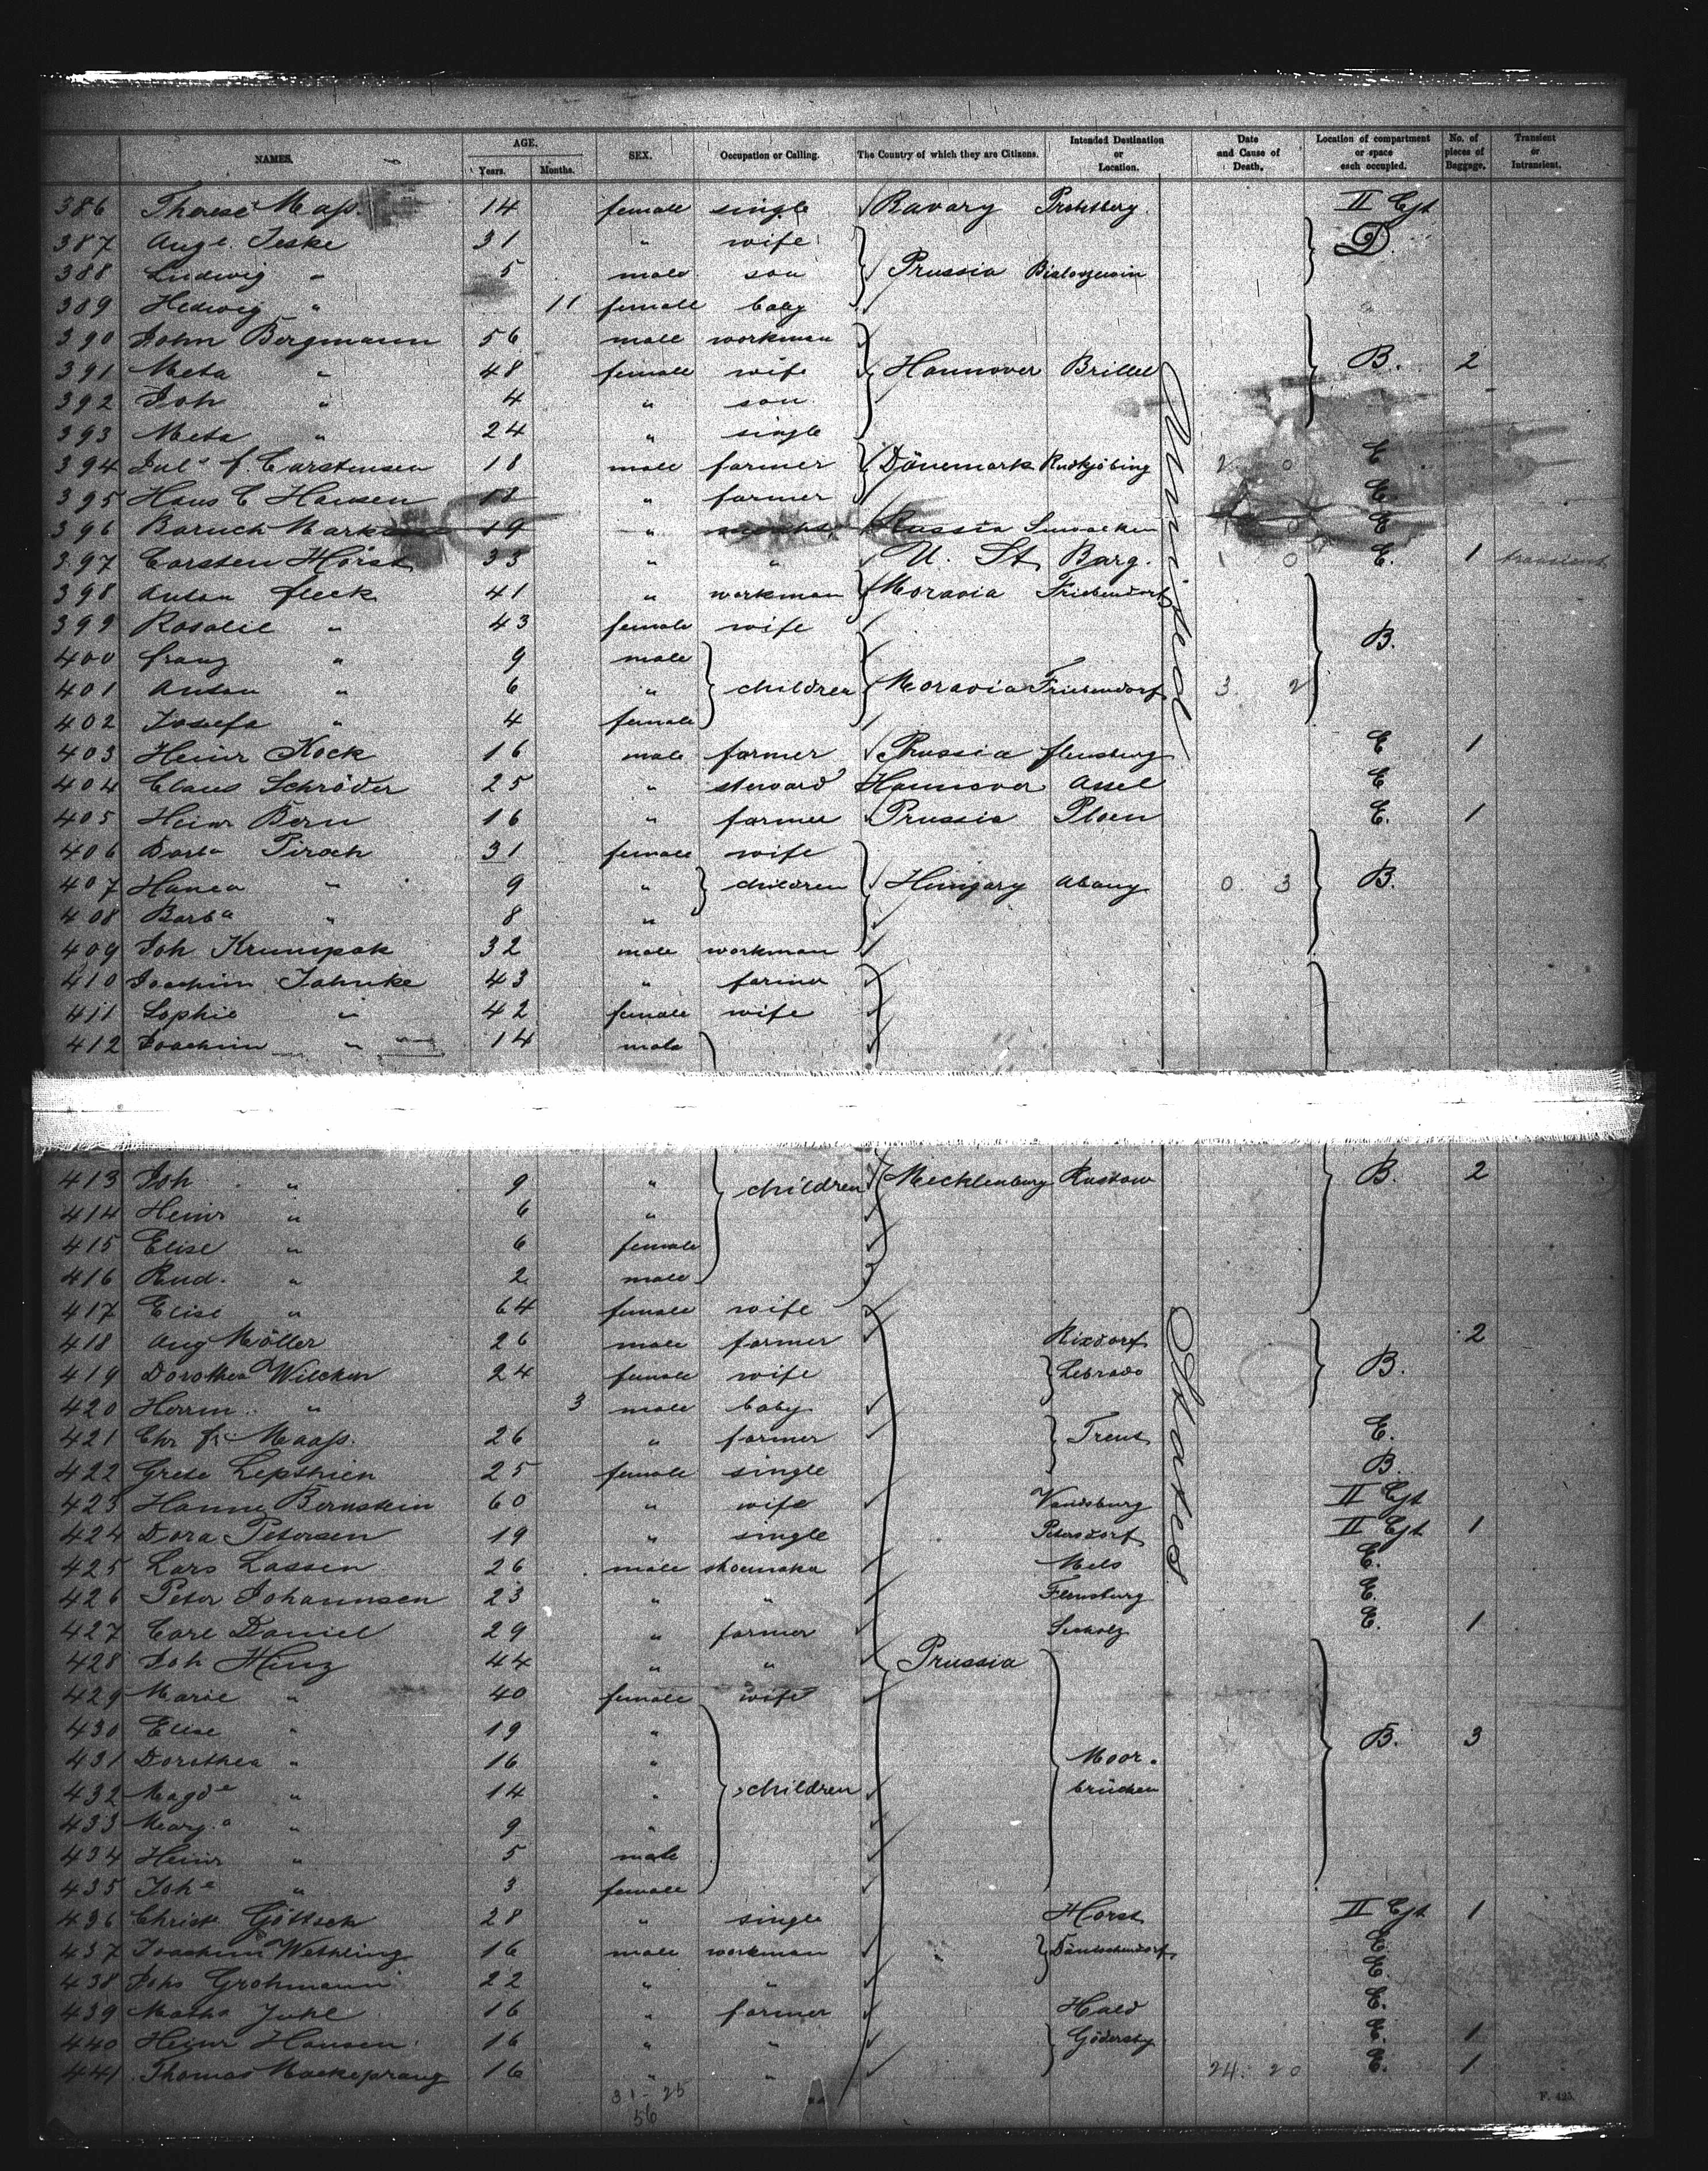 NAMES. AGE. Years. Months. SEX. Occupation or Calling. The Country of which they are Citizens. Intended Destination or Location. Date and Cause of Death. Location of compartment or space each occupied. No. of pieces of Baggage. Transient or Intransient.
386 Therese Maass 14 female single Bavary II Cjt
387 Auge. Jeske 31 " wife D.
388 Ludwig " 5 male son Prussia
389 Hedwig " 11 female baby
390 John Bergmann 56 male workman
391 Meta " 48 female wife Hannover Brillet B. 2
392 Joh " 4 " son
393 Meta " 24 " single
394 Juls f. Carstensen 18 male farmer Dänemark Rudkjöbing 2 0 E
395 Hans C Hansen 18 " farmer E.
396 Baruch 19 " Russia E
397 Carsten Horst 33 " " U. St Barg. 1 0 E. 1 transient
398 Anton fleck 41 " workman Moravia Friebendorf
399 Rosalie " 43 female wife B.
400 franz " 9 male
401 Anton " 6 " children Moravia Friebendorf 3 2
402 Josefa " 4 female
403 Heinr Kock 16 male farmer Prussia flensburg E 1
404 Claus Schröder 25 " steward Hannover Assel E
405 Heinr Bern 16 " farmer Prussia Ploen E. 1
406 Barba Piroch 31 female wife
407 Hanea " 9 " children Hungary Abauy 0. 3 B.
408 Barba " 8 "
409 Joh Krumpak 32 male workman
410 Joachim Jahnke 43 " farmer
411 Sophie " 42 female wife
412 Joachim " 14 male
413 Joh " 9 " children Mecklenburg Rustow B. 2
414 Heinr " 6 "
415 Elise " 6 female
416 Rud. " 2 male
417 Elise " 64 female wife
418 Aug Möller 26 male farmer Rixdorf 2
419 Dorothea Wilcken 24 female wife Lebrade B.
420 Herrm. " 3 male baby
421 Chr fr Maass. 26 " farmer Trent E.
422 Grete Lepthien 25 female single B.
423 Hanne Bernstein 60 " wife Vandsburg II Cjt
424 Dora Petersen 19 " single Petersdorf II Cjt 1
425 Lars Lassen 26 male shoemaker Mels E.
426 Peter Johannsen 23 " " Flensburg E.
427 Carl Daniel 29 " farmer E. 1
428 Joh Hinz 44 " " Prussia
429 Marie " 40 female wife
430 Elise " 19 " B. 3
431 Dorothea " 16 " Moor-
432 Magde " 14 " children brücken
433 Marg.a " 9 "
434 Heinr " 5 male
435 Johe " 3 female
436 Christe Göttsch 28 " single Horst II Cjt 1
437 Joachim Wethling 16 male workman " Dänischendorf E.
438 Johs Grohmann 22 " " E.
439 Maths Juhl 16 " farmer Hald E.
440 Heinr Hansen 16 " " Gödersby E. 1
441 Thomas Mackeprang 16 " " 24. 20 E. 1
31 - 25
56
United States
F. 425.